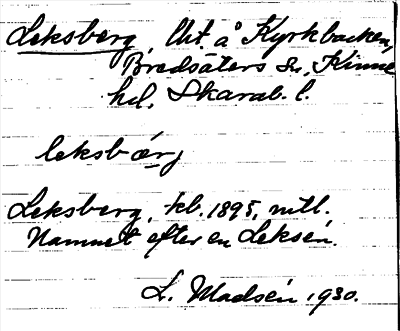 Leksberg, Lht. å Kyrkbacken,
Bredsäters sn, Kinne
hd. Skarab. l.
leksbærj
Leksberg, kb. 1895, mtl.
Namnet efter en Leksén.
L. Madsén 1930.